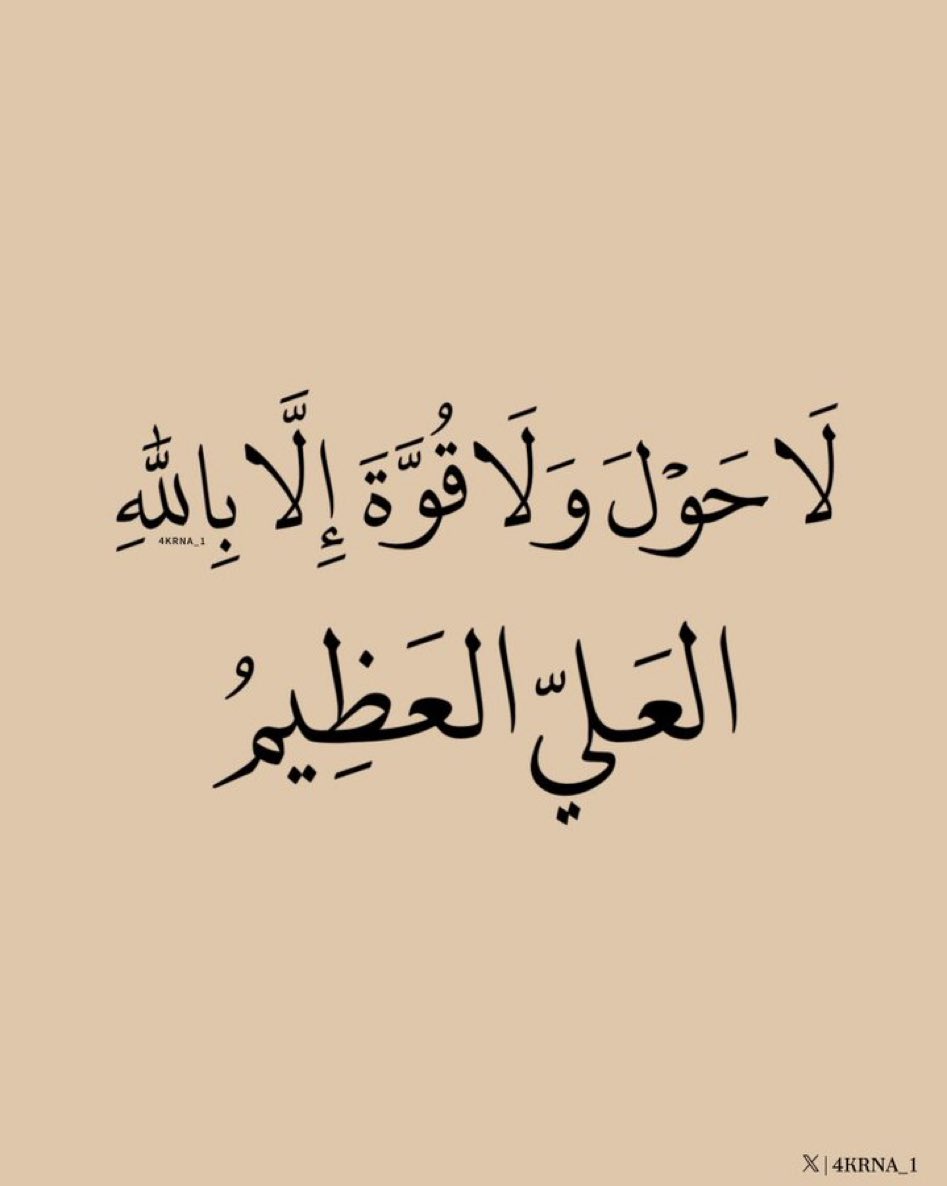 لَا حَوْلَ وَلَا قُوَّةَ إِلَّا بِاللَّهِ
4KRNA_1
العَليّ العَظِيمُ
𝕏 | 4KRNA_1